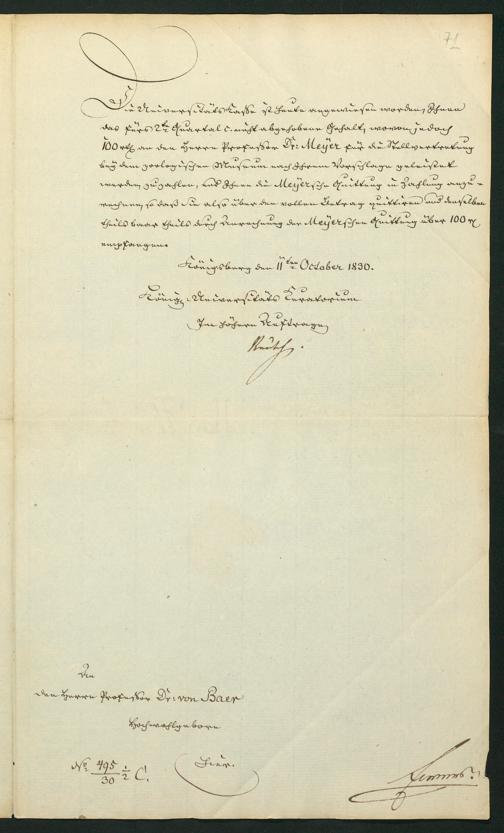 71
Die Universitäts Kasse ist heute angewiesen worden, Ihnen
das fürs 2te Quartal c. nicht abgehobene Gehalt, wovon jedoch
100 rtl an den Herrn Professor Dr. Meyer für die Stellvertretung
bei dem zoologischen Museum nach Ihrem Vorschlage geleistet
werden, zu zahlen, und Ihnen die Meyersche Quittung in Zahlung anzu-
rechnen, so daß Sie also über den vollen Betrag quittiren und denselben
theils baar theils durch Anrechnung der Meyerschen Quittung über 100 rtl
empfangen.
Königsberg den 11ten October 1830.
Königl. Universitäts Curatorium
Im höhern Auftrage
An
den Herrn Professor Dr. von Baer
Hochwohlgeboren
hier.
No. 495/30 1/2 C.